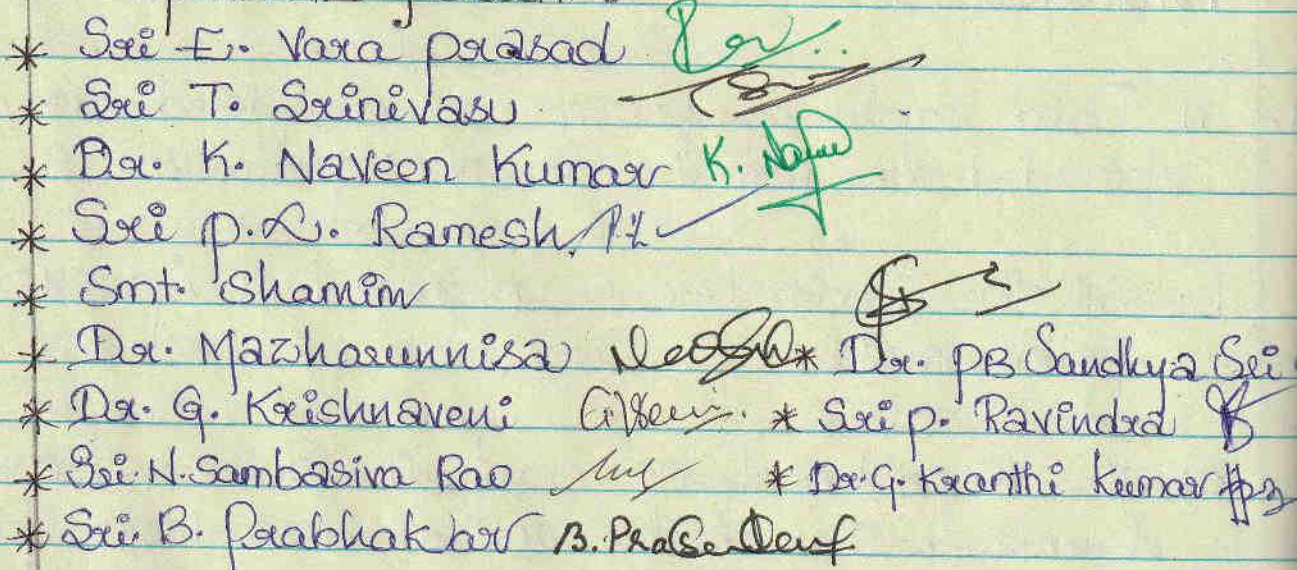 * Sri E. Vara prasad
* Sri T. Srinivasu
* Dr. K. Naveen Kumar K.
* Sri P.L. Ramesh
* Smt. Shamim
* Dr. Mazharunnisa * Dr. PB Sandhya Sri
* Dr. G. Krishnaveni * Sri P. Ravindra
* Sri. N. Sambasiva Rao * Dr. G. Kranthi Kumar
* Sri. B. Prabhakar B.